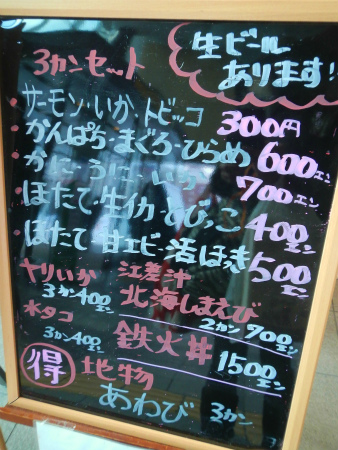 生ビール
あります!
3カンセット
・サーモン・いか・トビッコ 300円
・かんぱち・まぐろ・ひらめ 600エン
・かに・うに・いくら 700エン
・ほたて・生イカ・とびっこ 400エン
・ほたて・甘エビ・活ほっき 500エン
ヤリいか
3カン400エン
江差汁
北海しまえび
2カン700エン
水タコ
3カン400エン
鉄火丼 1500エン
得 地物
あわび 3カン